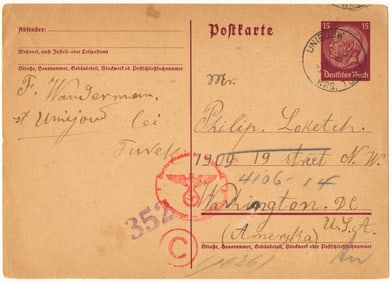 Absender:
Wohnort, auch Zustell- oder Leitpostamt
Straße, Hausnummer, Gebäudeteil, Stockwerk od. Postschließfachnummer
F. Wanderman.
st Uniejow bei
Turek
Postkarte
15 15
Deutsches Reich
UNIEJOW
Mr.
Philip. Loketch.
1909 19 street N.W.
4106-14
Washington, DC
U.S.A.
(Ameryka)
Straße, Hausnummer, Gebäudeteil, Stockwerk oder Postschließfachnummer
352
C